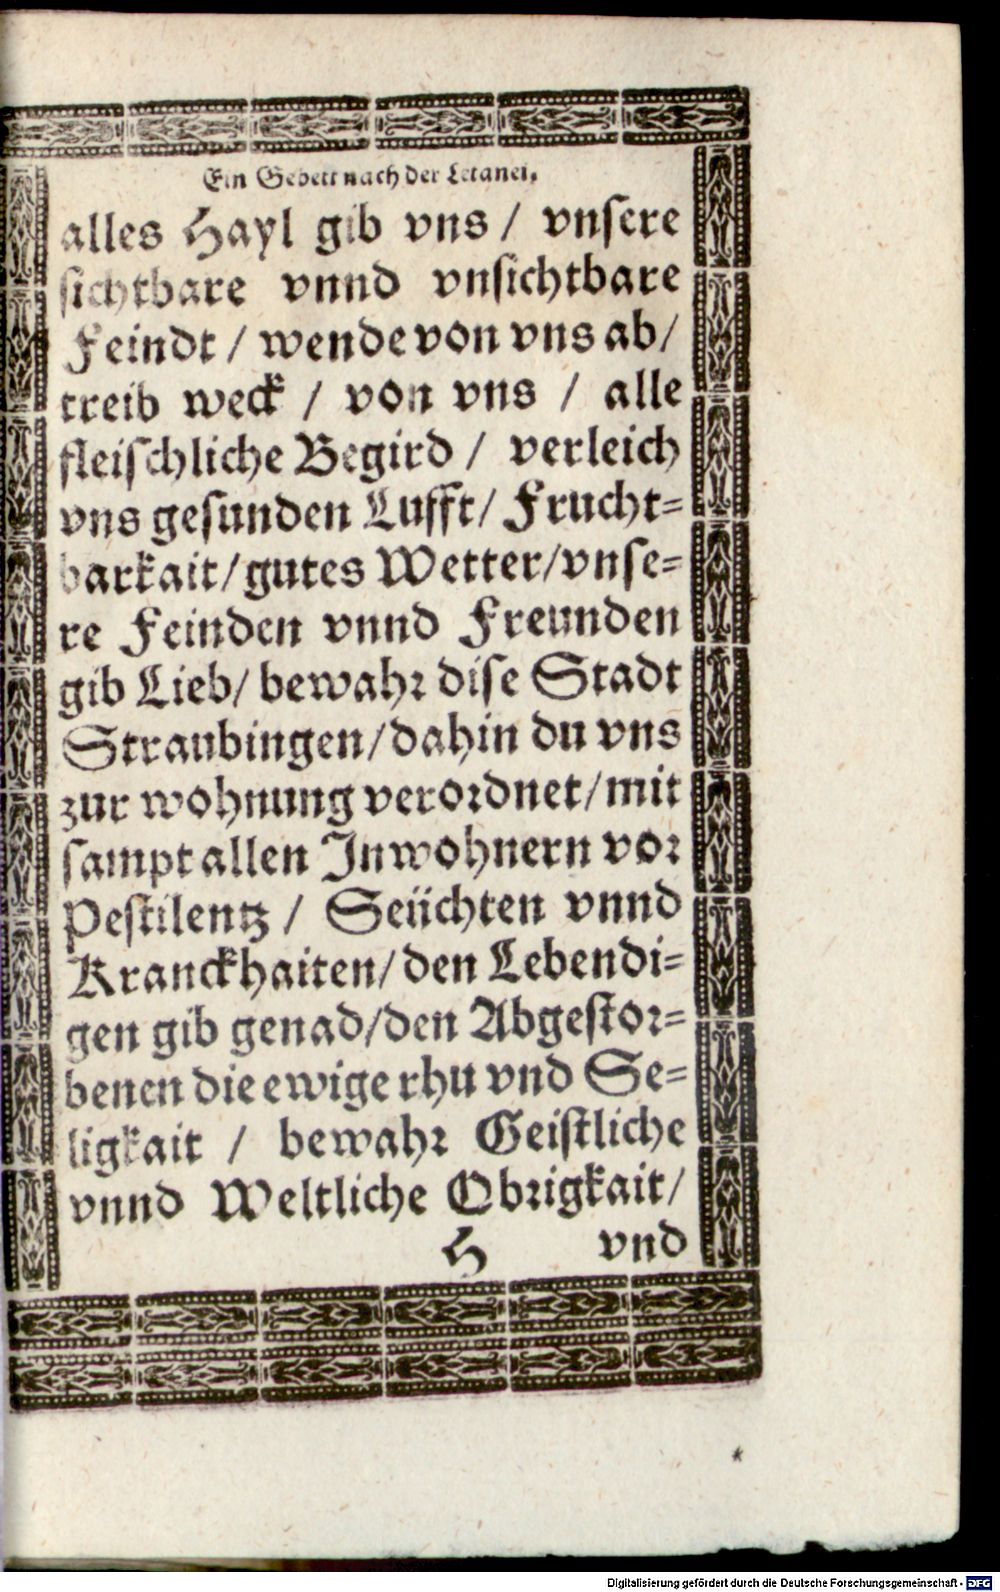 Ein Gebett nach der Letanei.
alles Hayl gib vns / vnsere
sichtbare vnnd vnsichtbare
Feindt / wende von vns ab /
treib weck / von vns / alle
fleischliche Begird / verleich
vns gesunden Lufft / Frucht=
barkait / gutes Wetter / vnse=
re Feinden vnnd Freunden
gib Lieb / bewahr dise Stadt
Straubingen / dahin du vns
zur wohnung verordnet / mit
sampt allen Inwohnern vor
Pestilentz / Seüchten vnnd
Kranckhaiten / den Lebendi=
gen gib genad / den Abgestor=
benen die ewige rhu vnd Se=
ligkait / bewahr Geistliche
vnnd Weltliche Obrigkait /
H vnd
Digitalisierung gefördert durch die Deutsche Forschungsgemeinschaft - DFG